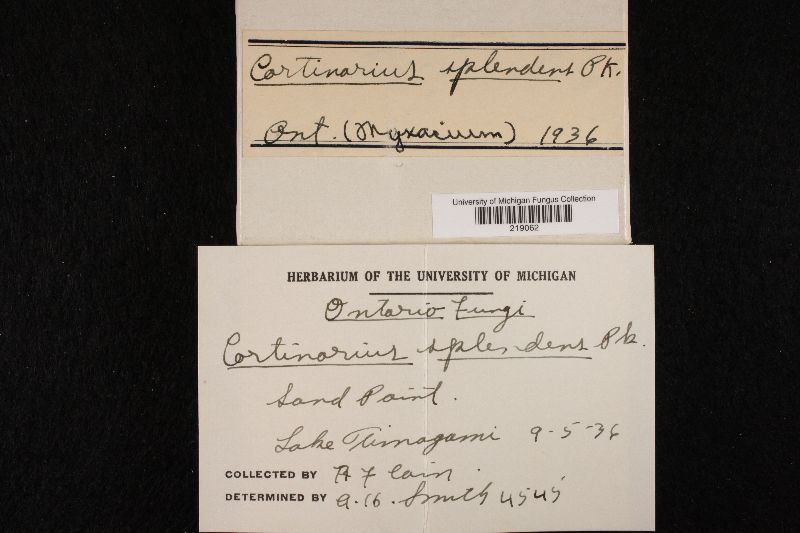 Cortinarius splendens Pk.
Ont. (Myxacium) 1936
University of Michigan Fungus Collection
219062
HERBARIUM OF THE UNIVERSITY OF MICHIGAN
Ontario Fungi
Cortinarius splendens Pk.
Sand Point.
Lake Timagami 9-5-36
COLLECTED BY R F Cain.
DETERMINED BY A. H. Smith 4545